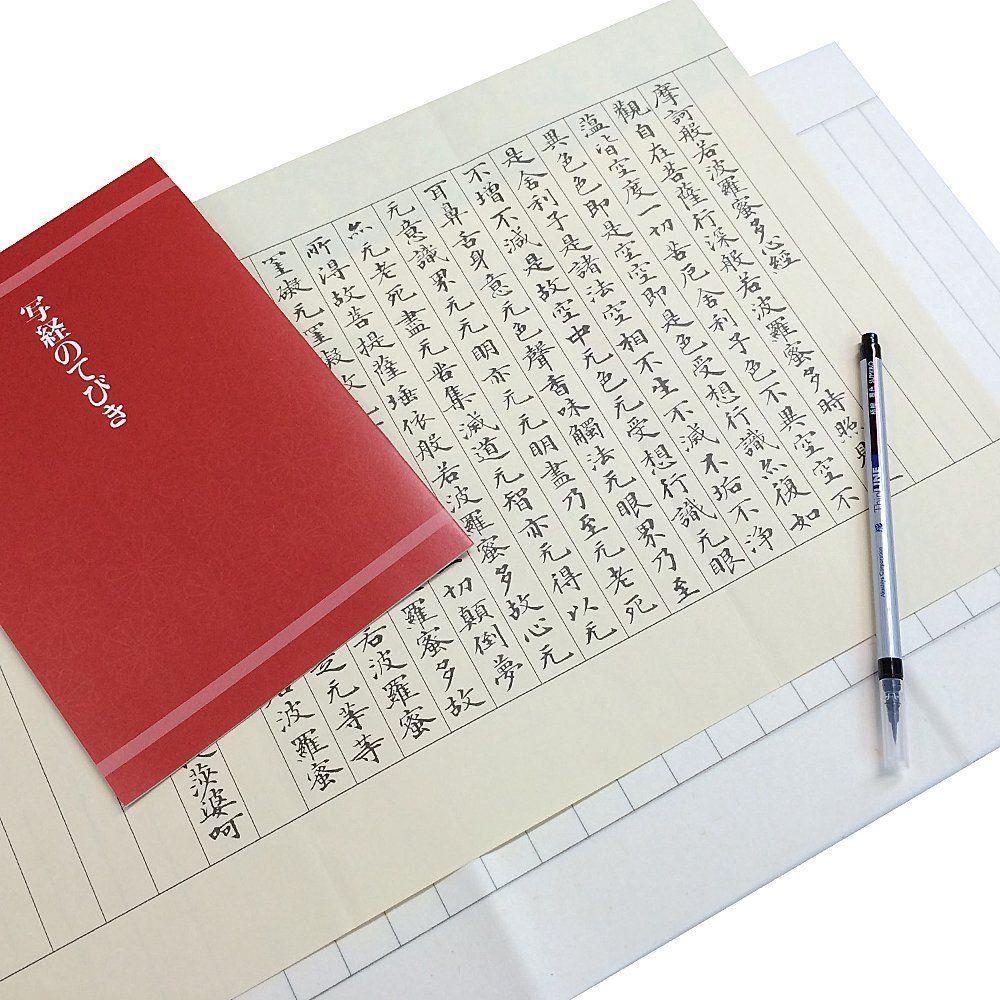 摩訶般若波羅蜜多心經
觀自在菩薩行深般若波羅蜜多時照見
蘊皆空度一切苦厄舍利子色不異空空不
異色色即是空空即是色受想行識亦復如
是舍利子是諸法空相不生不滅不垢不淨
不增不減是故空中无色无受想行識无眼
耳鼻舌身意无色聲香味觸法无眼界乃至
无意識界无无明亦无无明盡乃至无老死
亦无老死盡无苦集滅道无智亦无得以无
所得故菩提薩埵依般若波羅蜜多故心无
罣礙无罣礙故 切顛倒夢
羅蜜多故
若波羅蜜
无等等
波羅蜜
莎婆呵
写経のてびき
ThinLINE
Akashiya Corporation